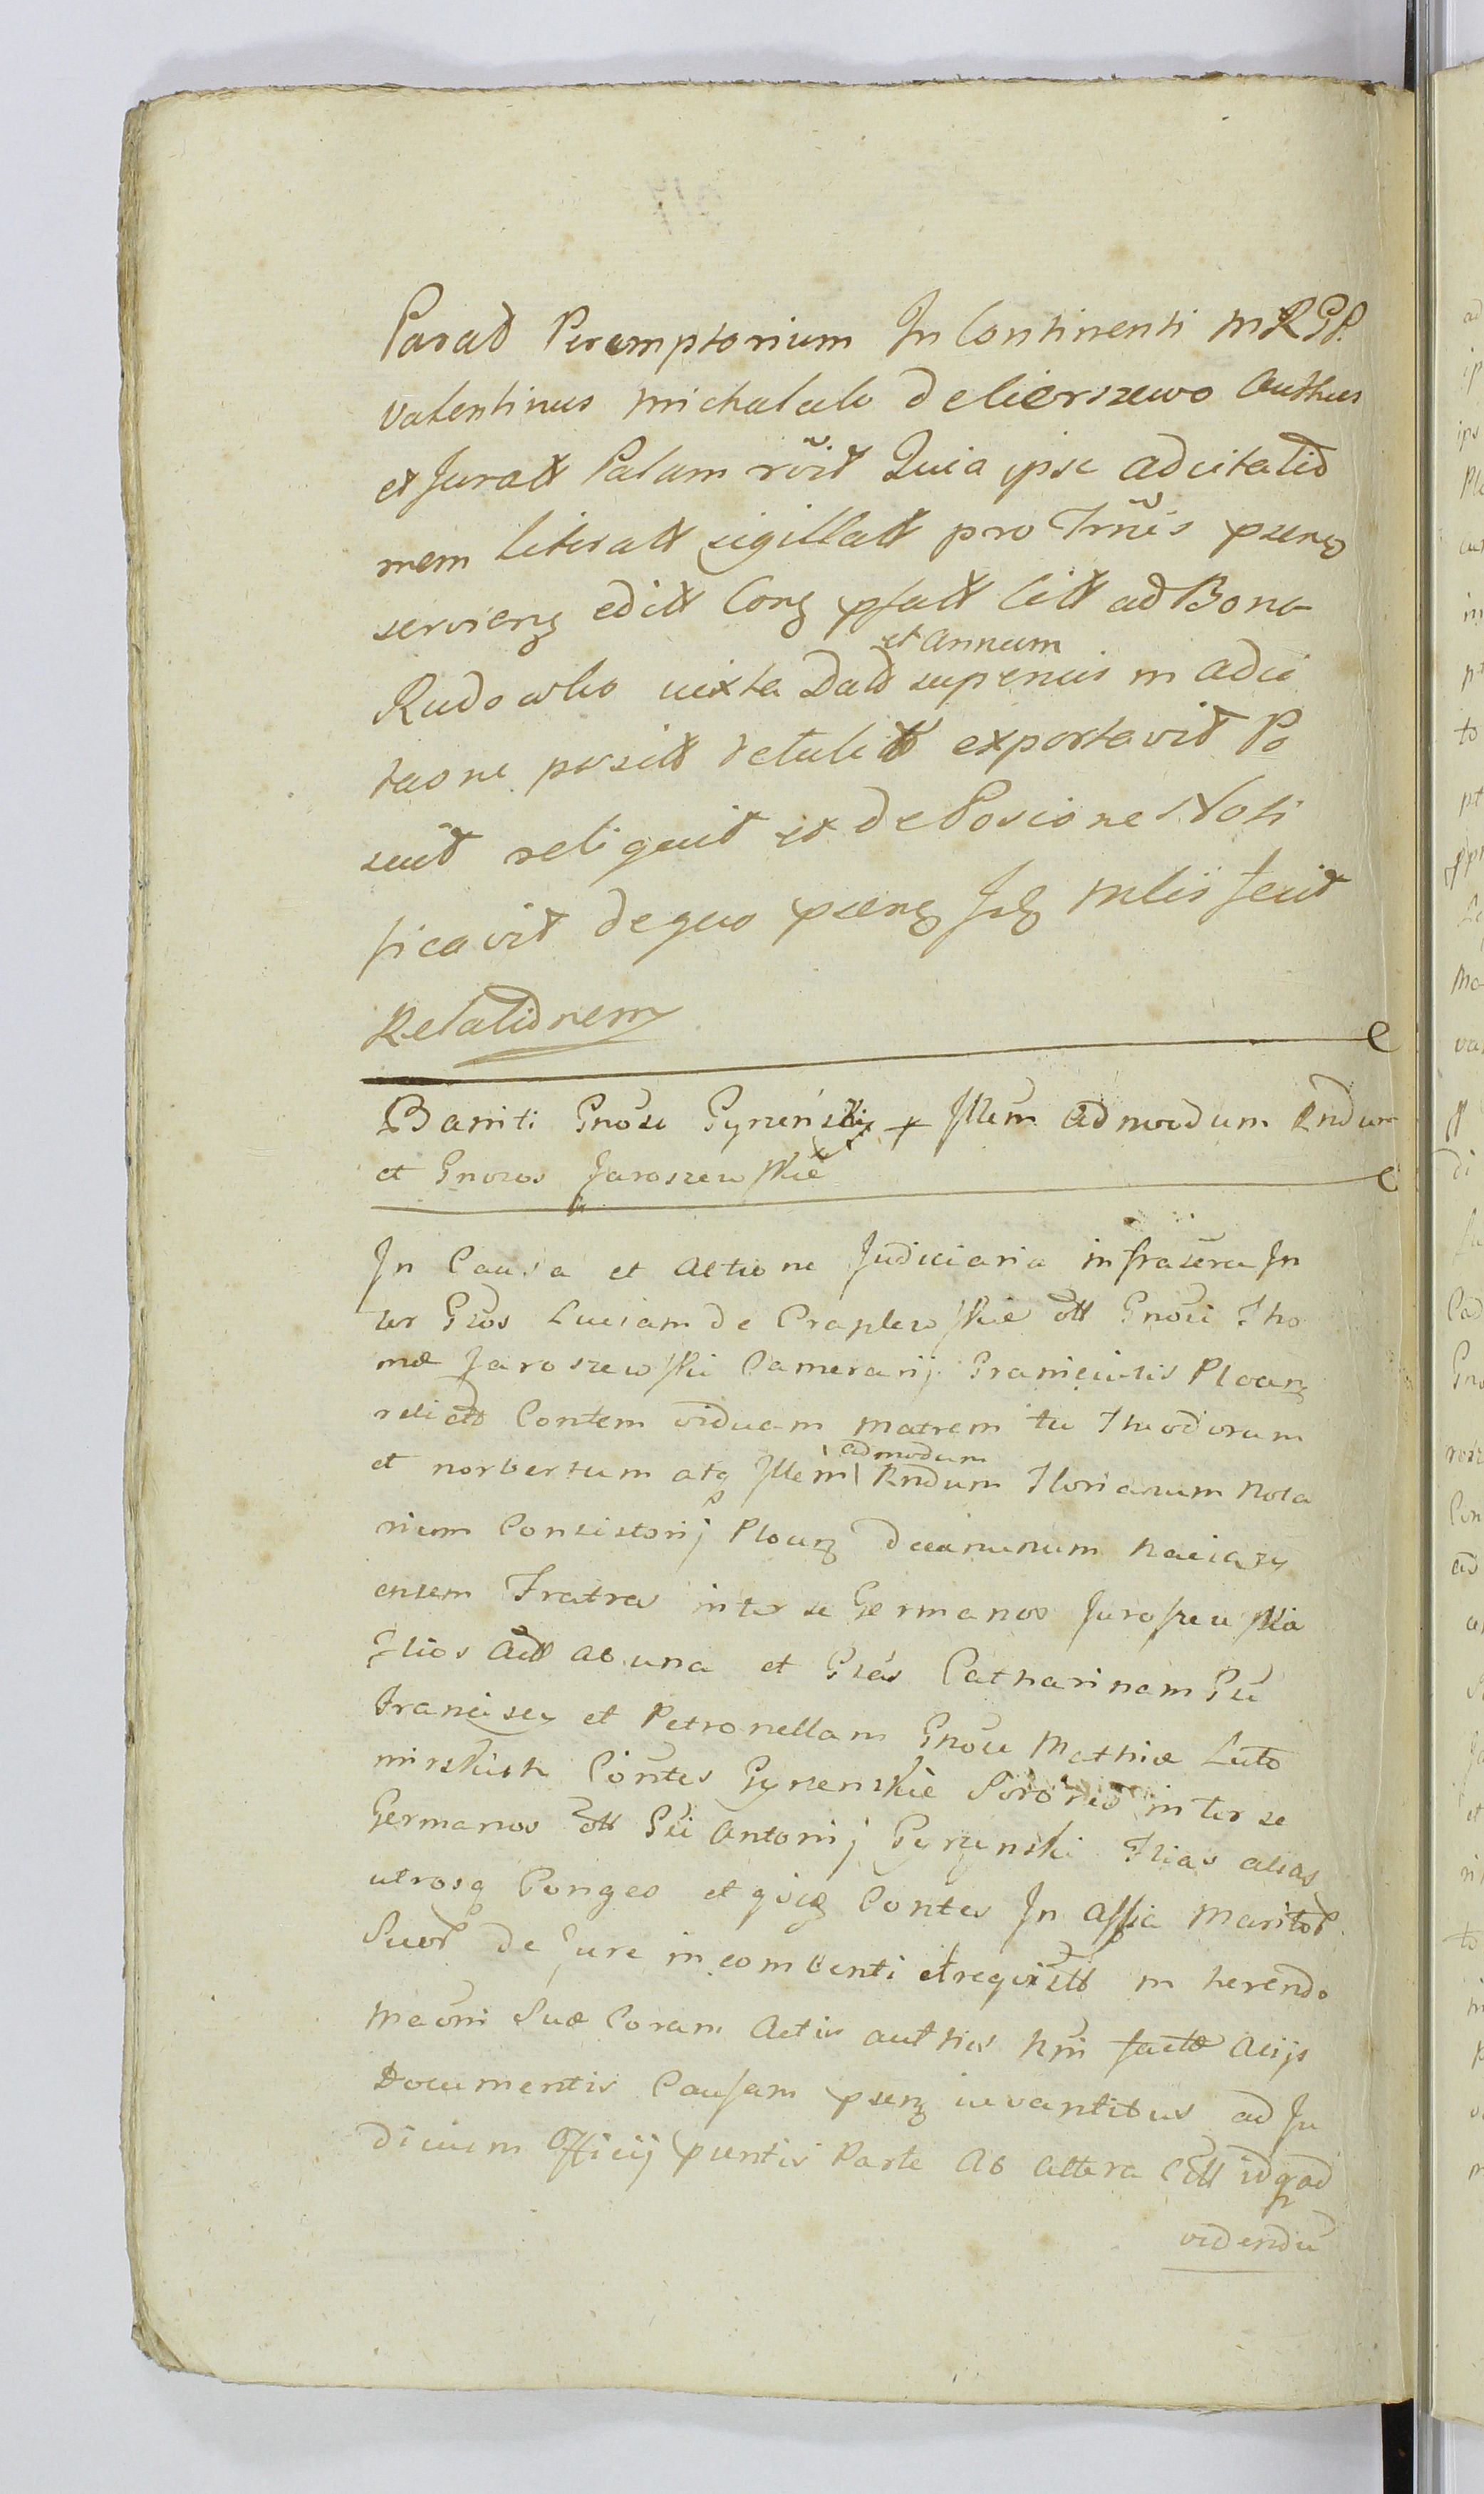 Parat Peremptorium In Continenti MRGR.
Valentinus Michalak de Cierszewo Authus
et Juratt Palam rõit Quia ipse adcitatio
nem literatt sigillatt pro Trnis psenq
serviens editt Conq psatt Citt ad Bona
Rudowko iuxta Datt et Annum superius in adci
taone posit detulit exportavit Po
suit reliquit et de Posicione Noti
ficavit de quo psenq Jdq Mliis fecit
Relationem
Baniti Gnose Gyzenskie + Illem admodum Rndum
et Gnosos Jaroszewskie
In Causa et Actione Judiciaria infrascra In
ter Gsos Luciam de Czaplewskie ott Gnosi Tho
mæ Jaroszewski Camerarij Granicialis Plocenq
relictt Contem viduam Matrem tu Theodorum
et Norbertum atq Illem admodum Rndum Florianum Nota
rium Consistorij Plocenq Decanum Raciaz
ensem Fratres inter se Germanos Jaroszewskie
Flios Actt ab una et Gsas Catharinam Gsi
Francisci et Petronellam Gnosi Mathiæ Luto
mirskich Contes Gyzenskie Sorores inter se
Germanos ott Gsi Antonij Gyzenski Flias alias
utrosq Conges et qvq Contes In Assia Maritor
Suor de Jure incombenti et requisitt in herendo
Maoni Suæ Coram Actis authis hmi factæ Aliis
Documentis Causam psenq iuvantibus ad Ju
dicium Officij psentis Parte Ab Altera Citt idq ad
videndu